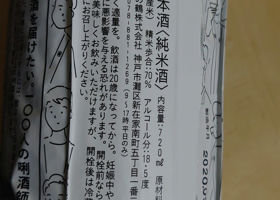 2020.
本酒〈純米酒〉 容量:720㎖ 原材料
産米) 精米歩合:70% アルコール分:18.5度
の鶴株式会社 神戸市灘区新在家南町五丁目一番二
078-881-1269(9〜17時平日のみ)
適量を。飲酒は20歳になってから。妊娠中や
に悪影響を与える恐れがあります。開栓前なら
美味しくお飲みいただけますが、開栓後は冷
にお召し上がりください。
酒を届けたい。一〇〇人の唎酒師